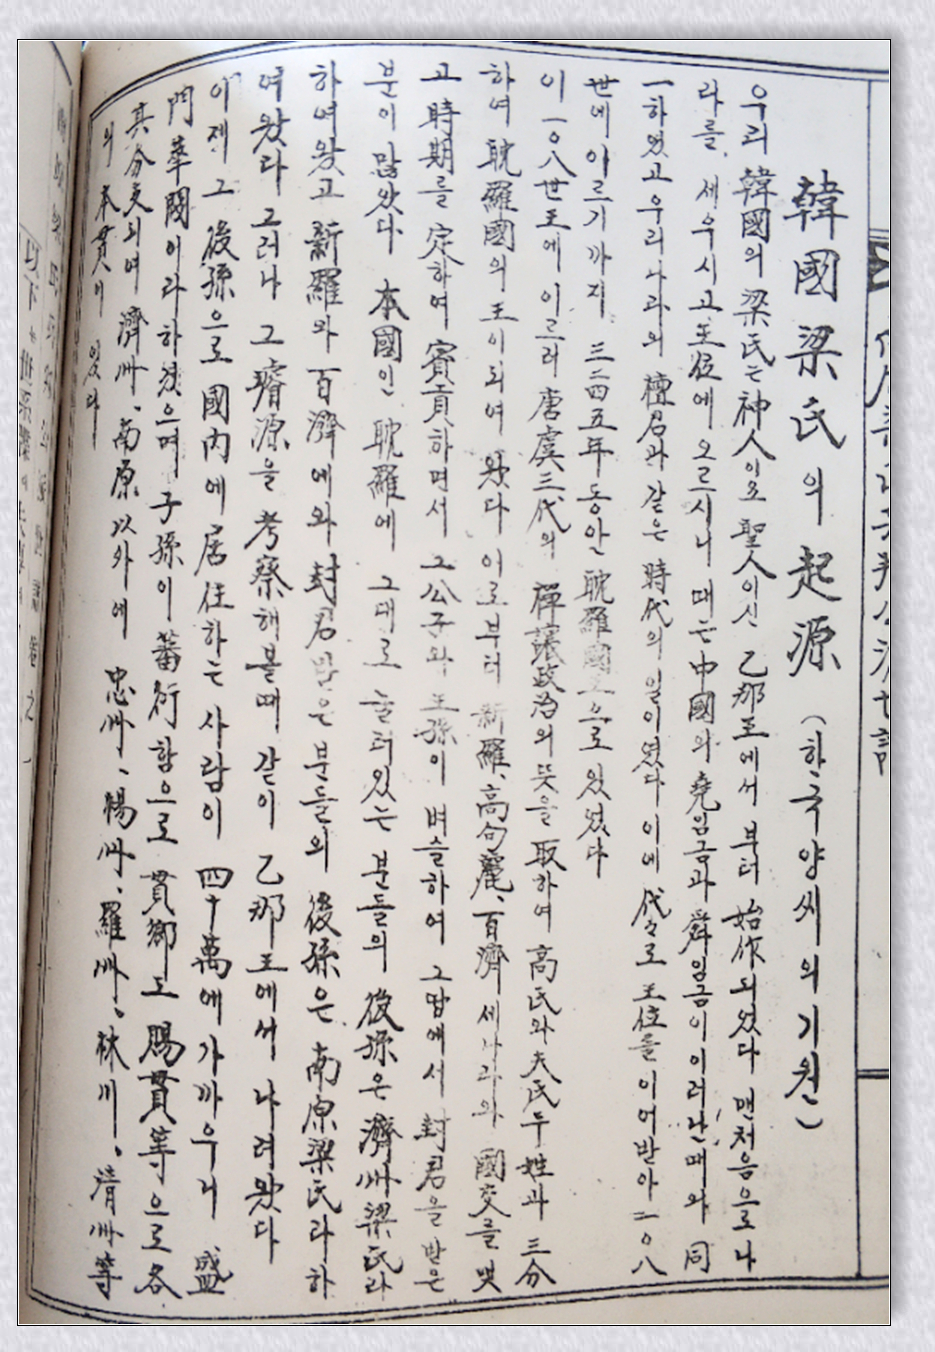 韓國梁氏의 起源 (한국양씨의기원)
우리 韓國의 梁氏는 神人이오 聖人이신 乙那王에서 부터 始作되었다 맨처음으로 나
라를 세우시고 王位에 오르시니 때는 中國의 堯임금과 舜임금이 이러난때와 同
一하였고 우리나라의 檀君과 같은 時代의 일이였다 이에 代々로 王位를 이어받아 二○八
世에 이르기까지 三二四五年동안 耽羅國王으로 있었다
이 一○八世王에 이르러 唐虞三代의 禪讓政治의 뜻을 取하여 高氏와 夫氏두 姓과 三分
하여 耽羅國의 王이되여 왔다 이로부터 新羅、高句麗、百濟 세나라와 國交를 맺
고 時期를 定하여 賓貢하면서 그公子와 王孫이 벼슬하여 그땅에서 封君을 받은
분이 많았다 本國인 耽羅에 그대로 눌러있는 분들의 後孫은 濟州梁氏라
하여왔고 新羅와 百濟에와 封君받은 분들의 後孫은 南原梁氏라하
여왔다 그러나 그 璿源을 考察해볼때 같이 乙那王에서 나려왔다
이제 그 後孫으로 國內에 居住하는 사람이 四十萬에가까우니 盛
門華閥이라하겠으며 子孫이 蕃衍함으로 貫鄕도 賜貫等으로 各
其分支되여 濟州、南原以外에 忠州、楊州、羅州、林川、淸州等
의 本貫이 있다